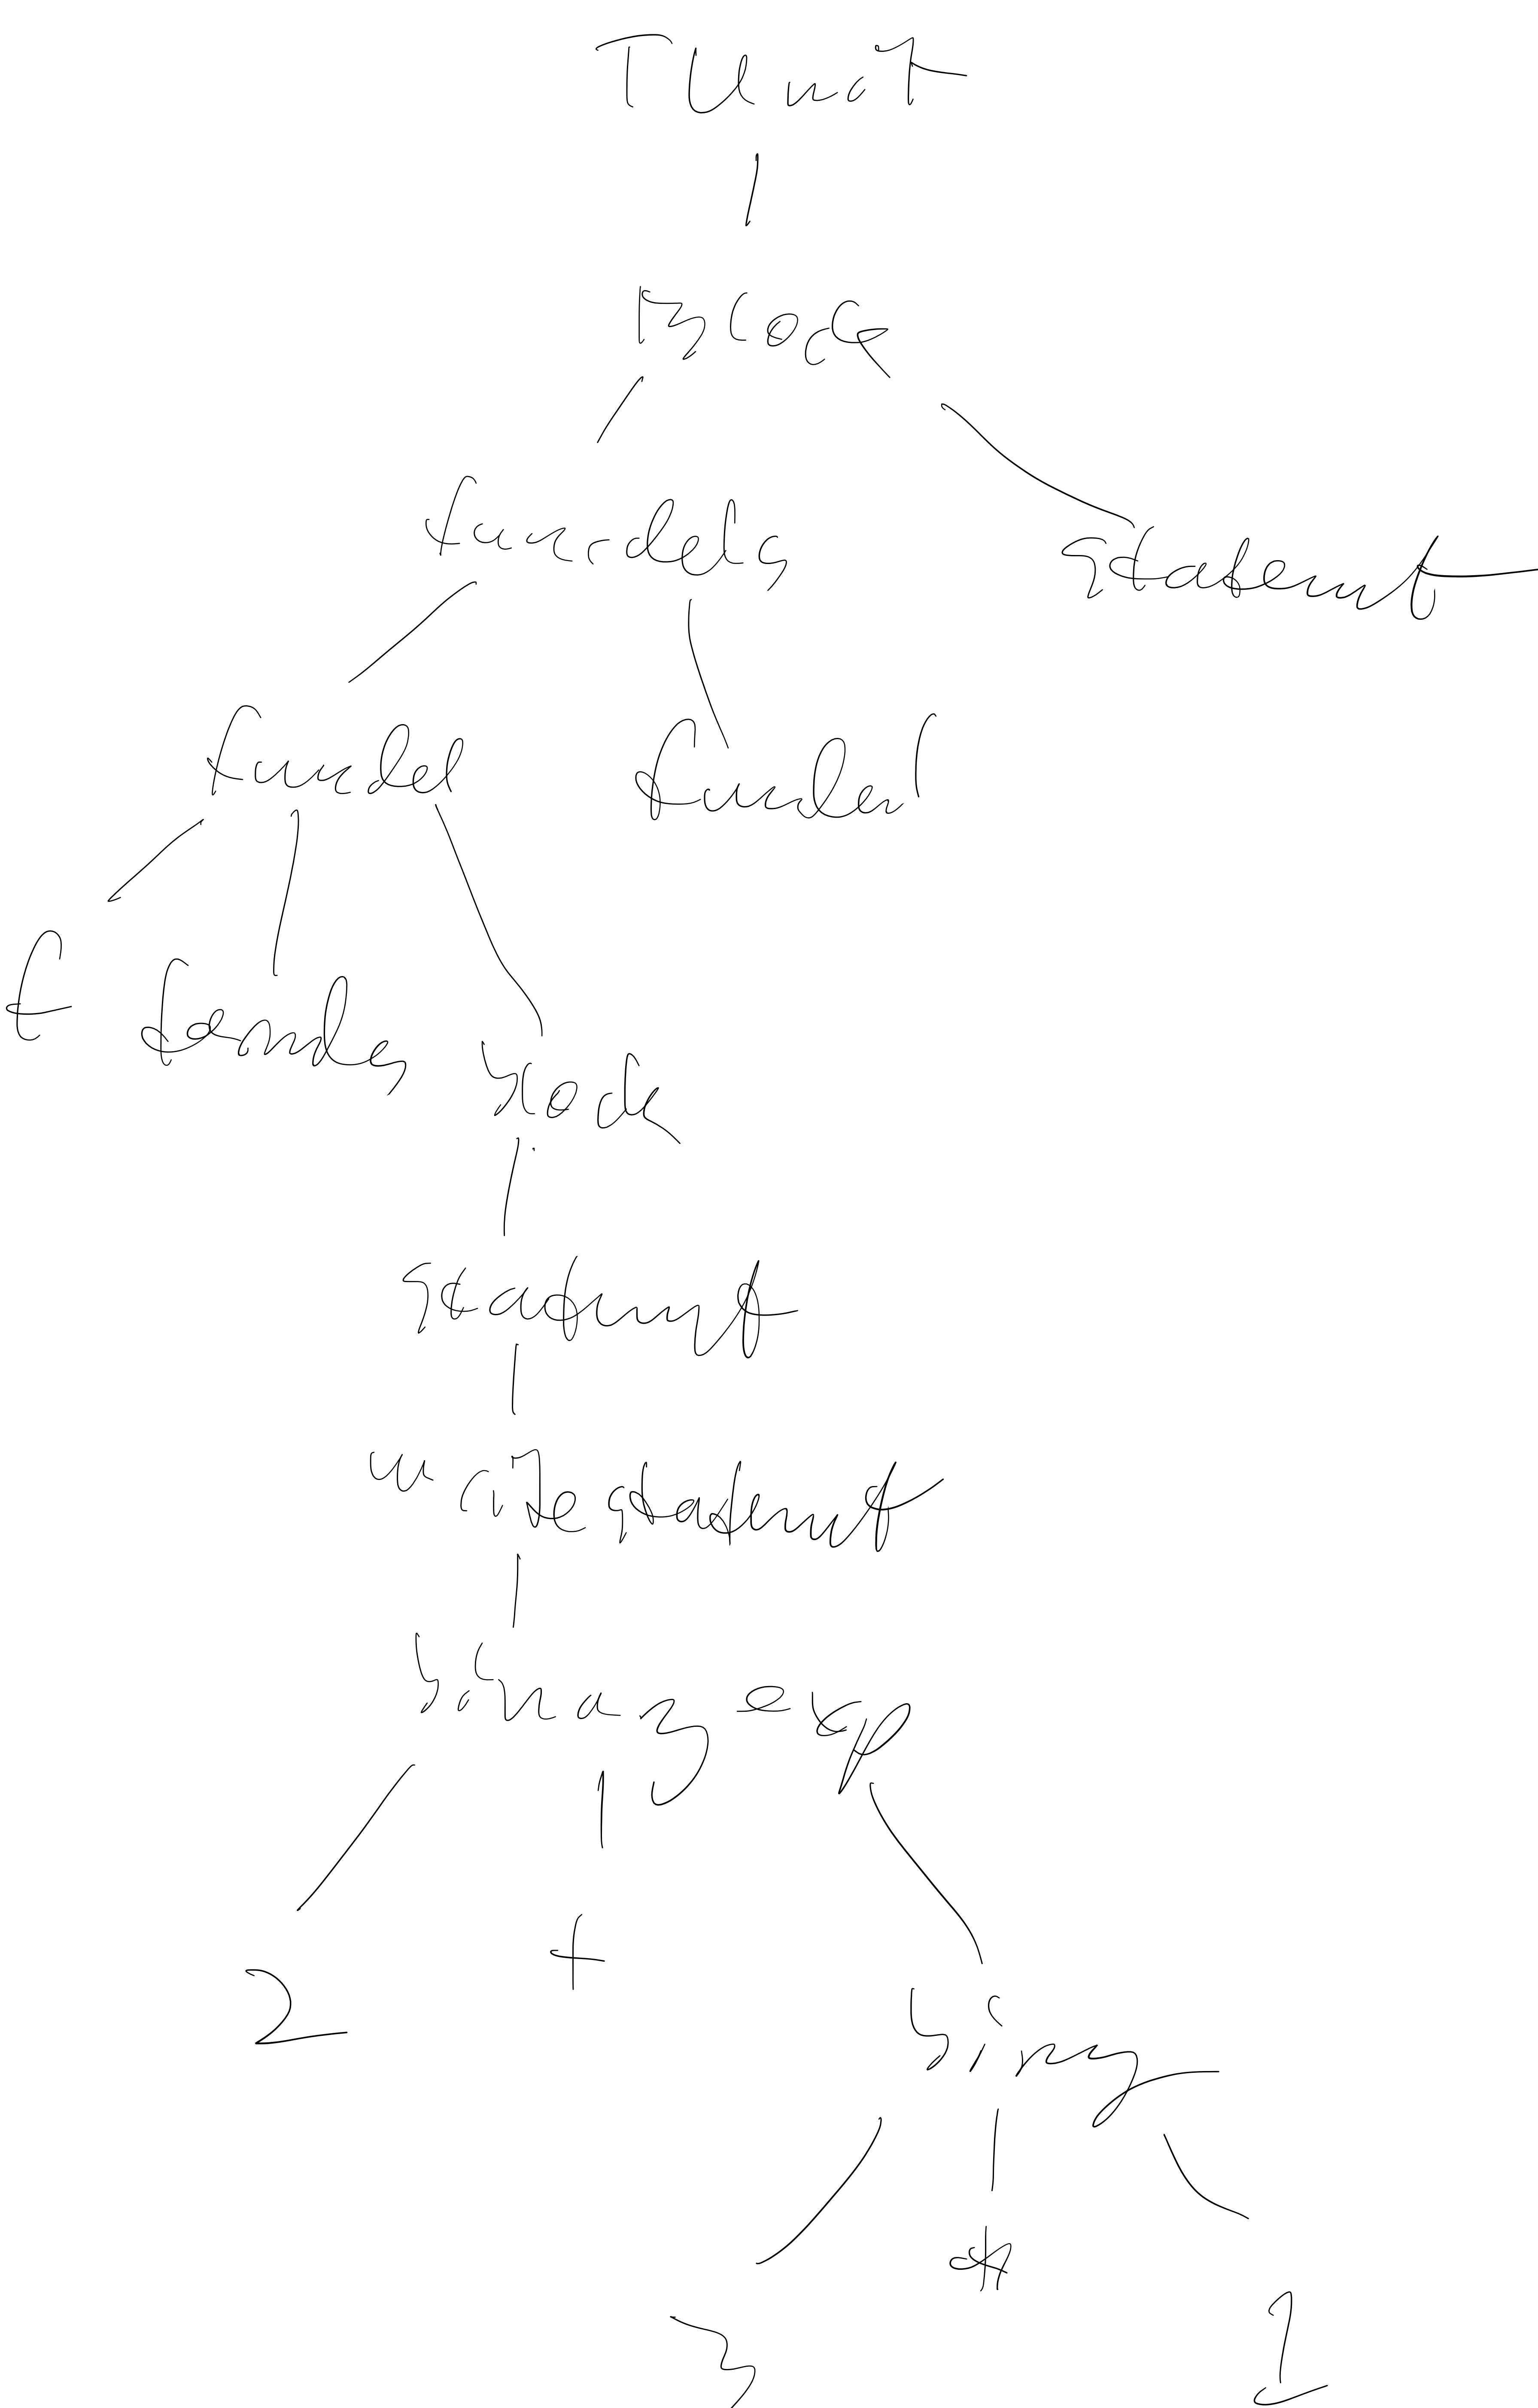 TUnit
Block
fundels
statement
fundel
fundel
f
formles
block
statemt
writestatemt
binary exp
2
+
binry
*
3
1